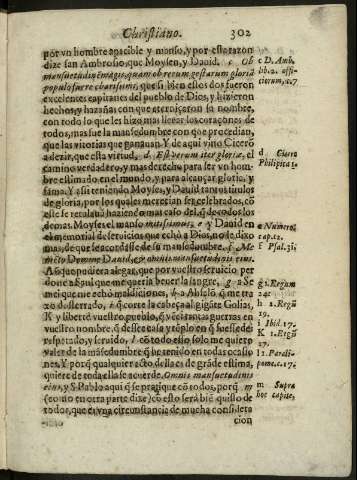 Christiano. 302
por vn hombre apacible y manso, y por esta razon
dize san Ambrosio, que Moysen, y Dauid. c Ob
mansuetudinē magis, quam ob rerum gestarum gloriā
populo fuere charissimi, que si bien estos dos fueron
excelentes capitanes del pueblo de Dios, y hizieron
hechos, y hazañas con que
con todo lo que les hizo mas lleuar los coraçones de
todos, mas fue la mansedumbre con que procedian,
que las vitorias que ganauan. Y de aqui vino Cicero
a dezir, que esta virtud, d Est verum iter gloriæ, el
camino verdadero, y mas derecho para ser vn hom-
bre estimado en el mundo, y para alcançar gloria, y
fama. Y assi teniendo Moyses, y Dauid tantos titulos
de gloria, por los quales merecian ser celebrados, cō
este se
demas. Moyses el manso mitissimus, e y Dauid en
el memorial de seruicios que echò a Dios, no le dixo
mas, de que se acordasse de su mansedumbre. f Me-
mēto Domine Dauid, & omnis mansuetudinis eius.
Assi que pudiera alegar, que por vuestro seruicio per
done a Saul que me queria beuer la sangre, g a Se-
mei que me echò maldiciones, h a Absalō q̄ me tra
xo desterrado, i q̄ corte la cabeça al gigāte Golias,
K y libertè vuestro pueblo, q̄ vēci tantas guerras en
vuestro nombre, q̄ desseè casa y tēplo en q̄ fuessedes
respetado, y seruido, l cō todo esso solo me quiero
valer de la mansedumbre q̄ he tenido en todas ocasio
nes. Y porq̄ qualquier acto della es de grāde estima,
quiere de toda ella se acuerde. Omnis mansuetudinis
eius, y S. Pablo aqui q̄ se pratique cō todos, porq̄ m
(como en otra parte dixe) cō esto serà biē quisto de
todos, que es vna circunstancia de mucha consideracion
c D. Amb.
lib. 2. offi-
ciorum, c. 7
d Cicero
Philipica 1.
e Numeror.
f Psal. 31.
g 1. Regum
24.
h 2. Regū
19.
i Ibid. 17.
K 1. Regū
17.
l 1. Paralipo
me. c. 17.
m Supra
hoc capite,